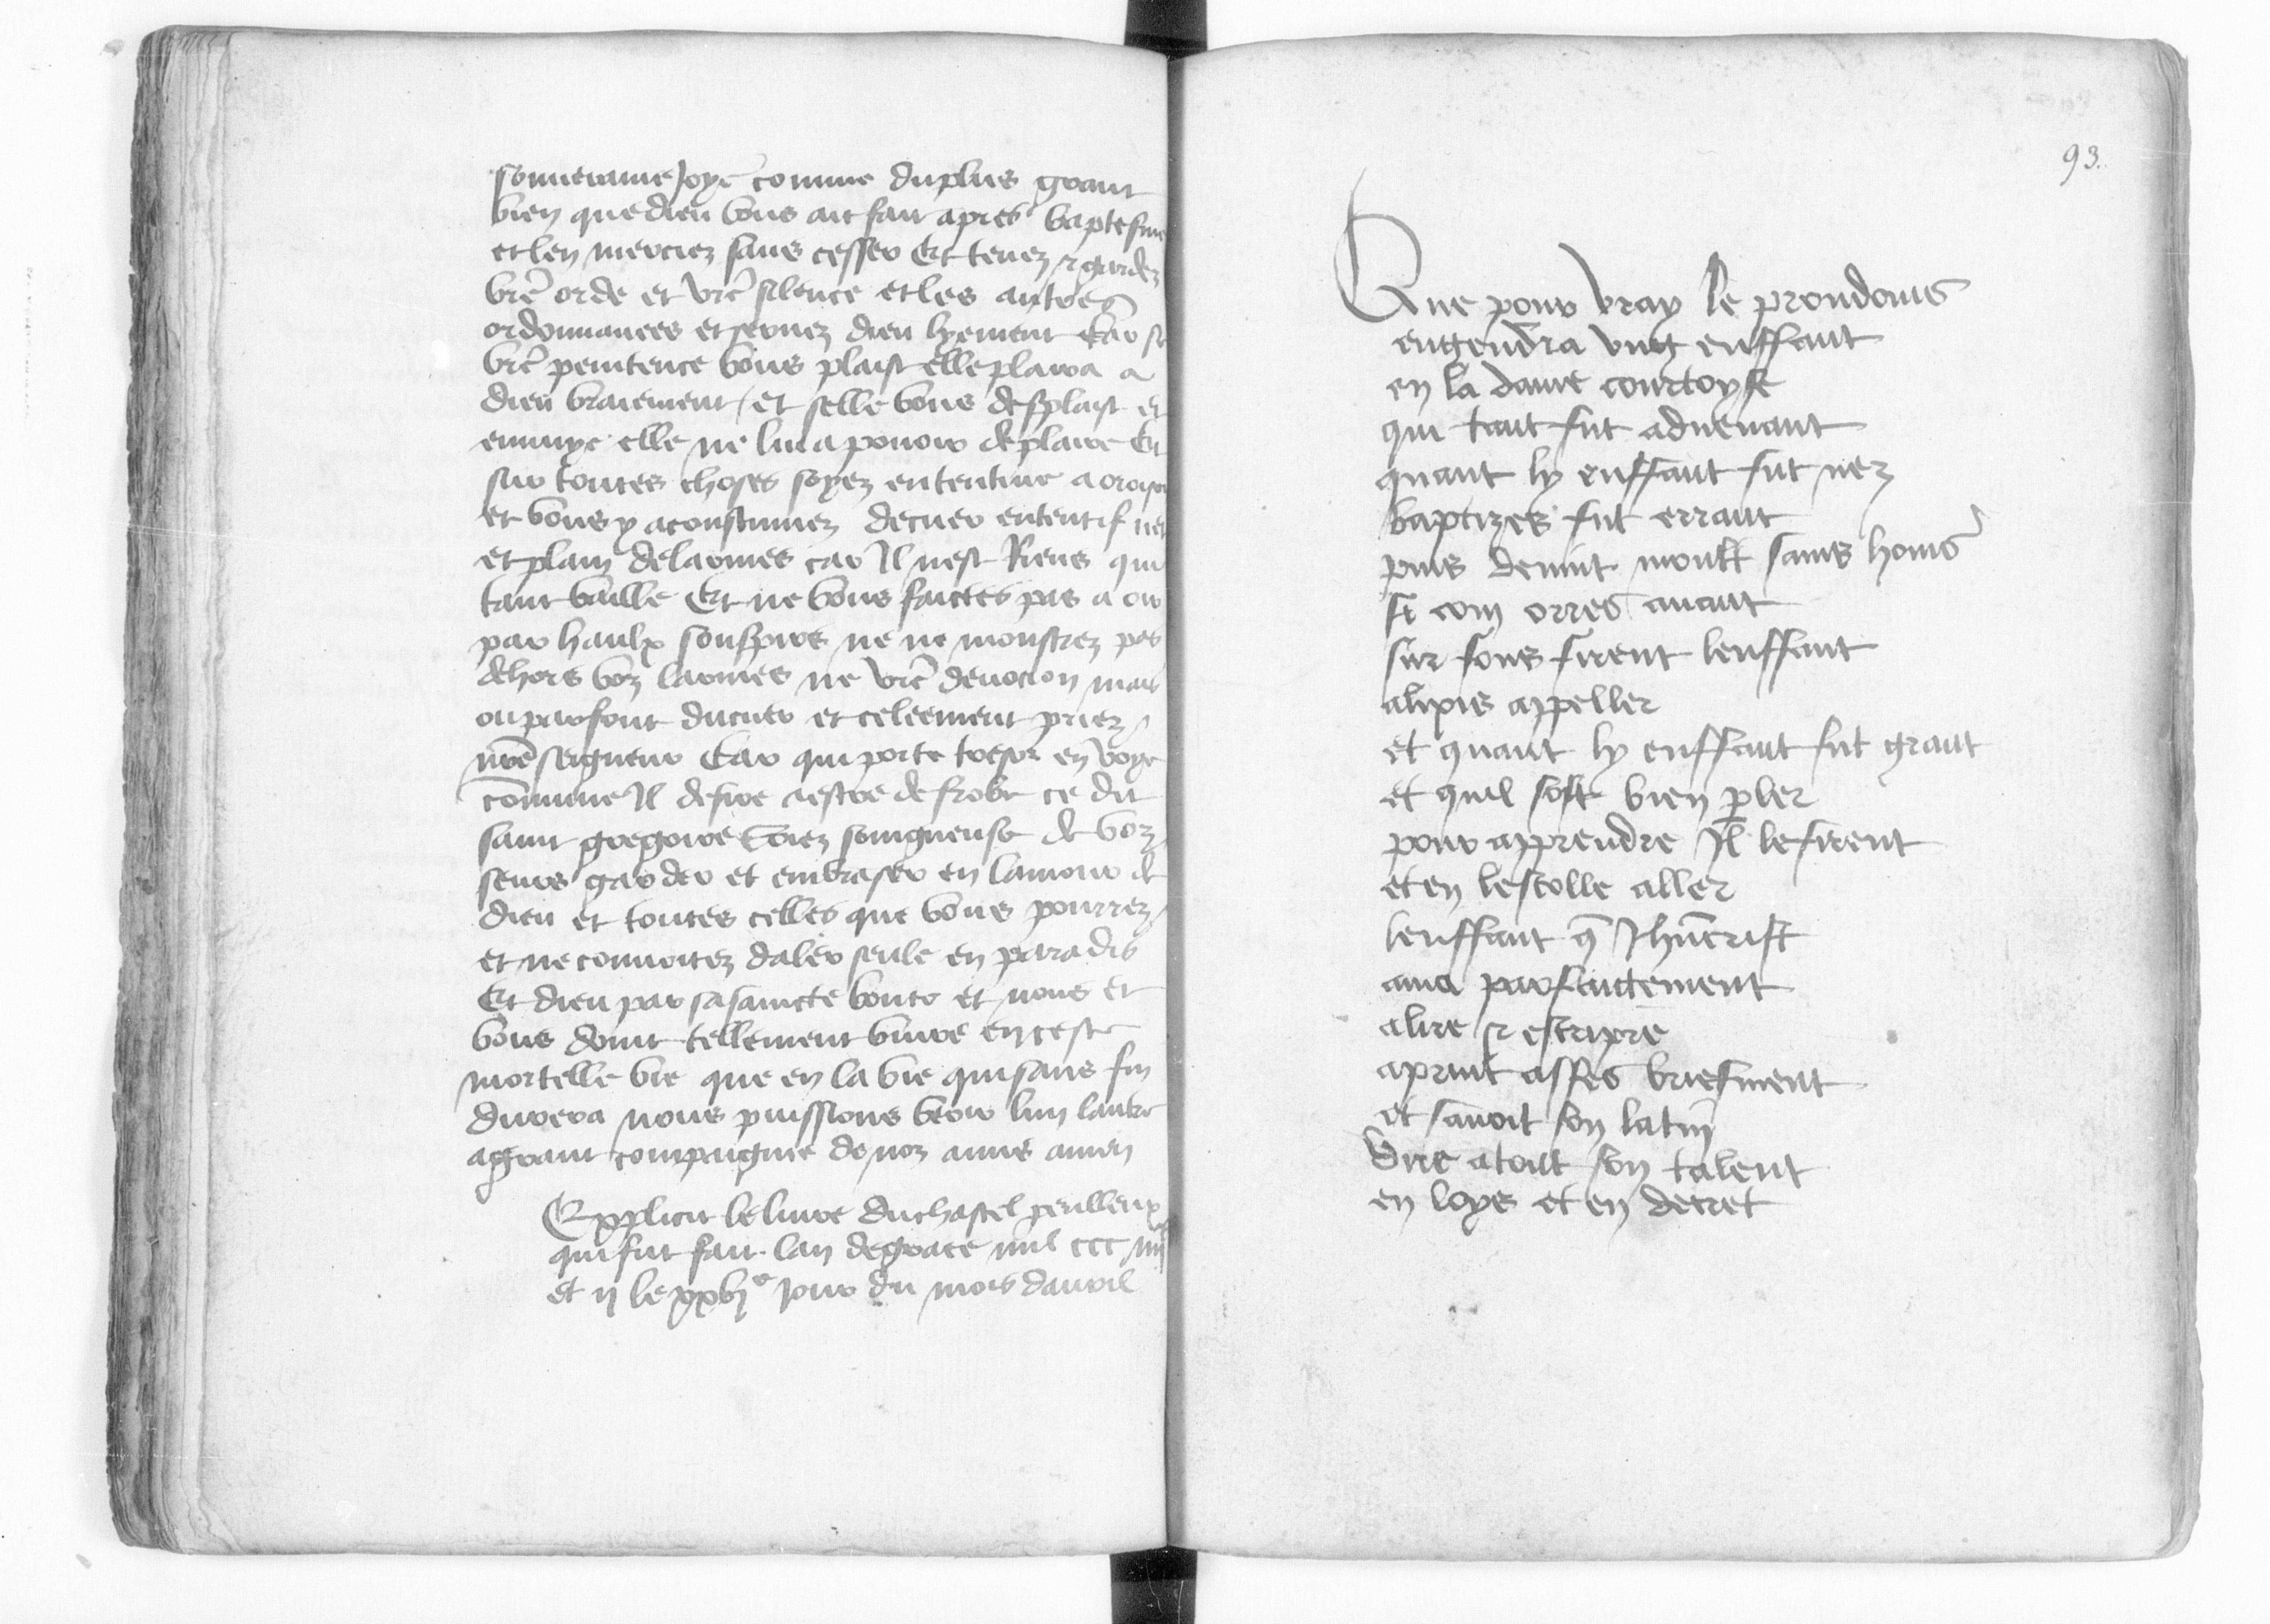 souueraine Joye comme du plus grant
bien que dieu vous ait fait apres baptesme
et len merciez sans cesser Et tenez et gardez
vr̃e orde et vr̃e silence et les autres
ordonnances et seruez dieu lyement Car se
vr̃e penitence vous plaist elle plaira a
dieu vraiement / et selle vous desplaist et
ennuye elle ne luy a pouoir de plaire Et
sur toutes choses soyez ententiue a oroison
et vous y acoustumez de cuer ententif net
et plain de larmes car Il nest Riens qui
tant vaille Et ne vous faictes pas a oir
par haulx souspirs ne ne monstrez pas
dehors voz larmes ne vr̃e deuocion mais
ou parfont du cuer et celeement priez
nr̃e seigneur Car qui porte tresor en voye
comme Il desire aestre desrobe ce dit
saint gregoire Soiez soingneuse de voz
seurs garder et embraser en lamour de
dieu et toutes celles que vous pourrez
et ne conuoitez daler seule en paradis
Et dieu par sa saincte bonte et nous et
vous doint tellement viure en ceste
mortelle vie que en la vie qui sans fin
durera nous puissions veoir lun lautre
a grant compaignie de noz amis amen
Explicit le liure du chastel perilleux
qui fut fait lan de grace mil ccc iiii
et ij le xxvj e Jour du mois dauril
93.
Que pour vray le proudoms
engendra vng enffant
en la dame courtoyse
qui tant fut aduenant
quant ly enffant fut nez
baptizes fut errant
puis deuint moult sains homs
si com orres auant
sur fons firent lenffant
alixis appeller
et quant ly enffant fut grant
et quil soft bien p̱ler
pour apprendre Il le firent
et en lescolle aller
lenffant q̃ Jhũcrist
ama parfaictement
alire et escripre
aprint asses briefment
et sauoit son latin
dire atout son talent
en loys et en decret